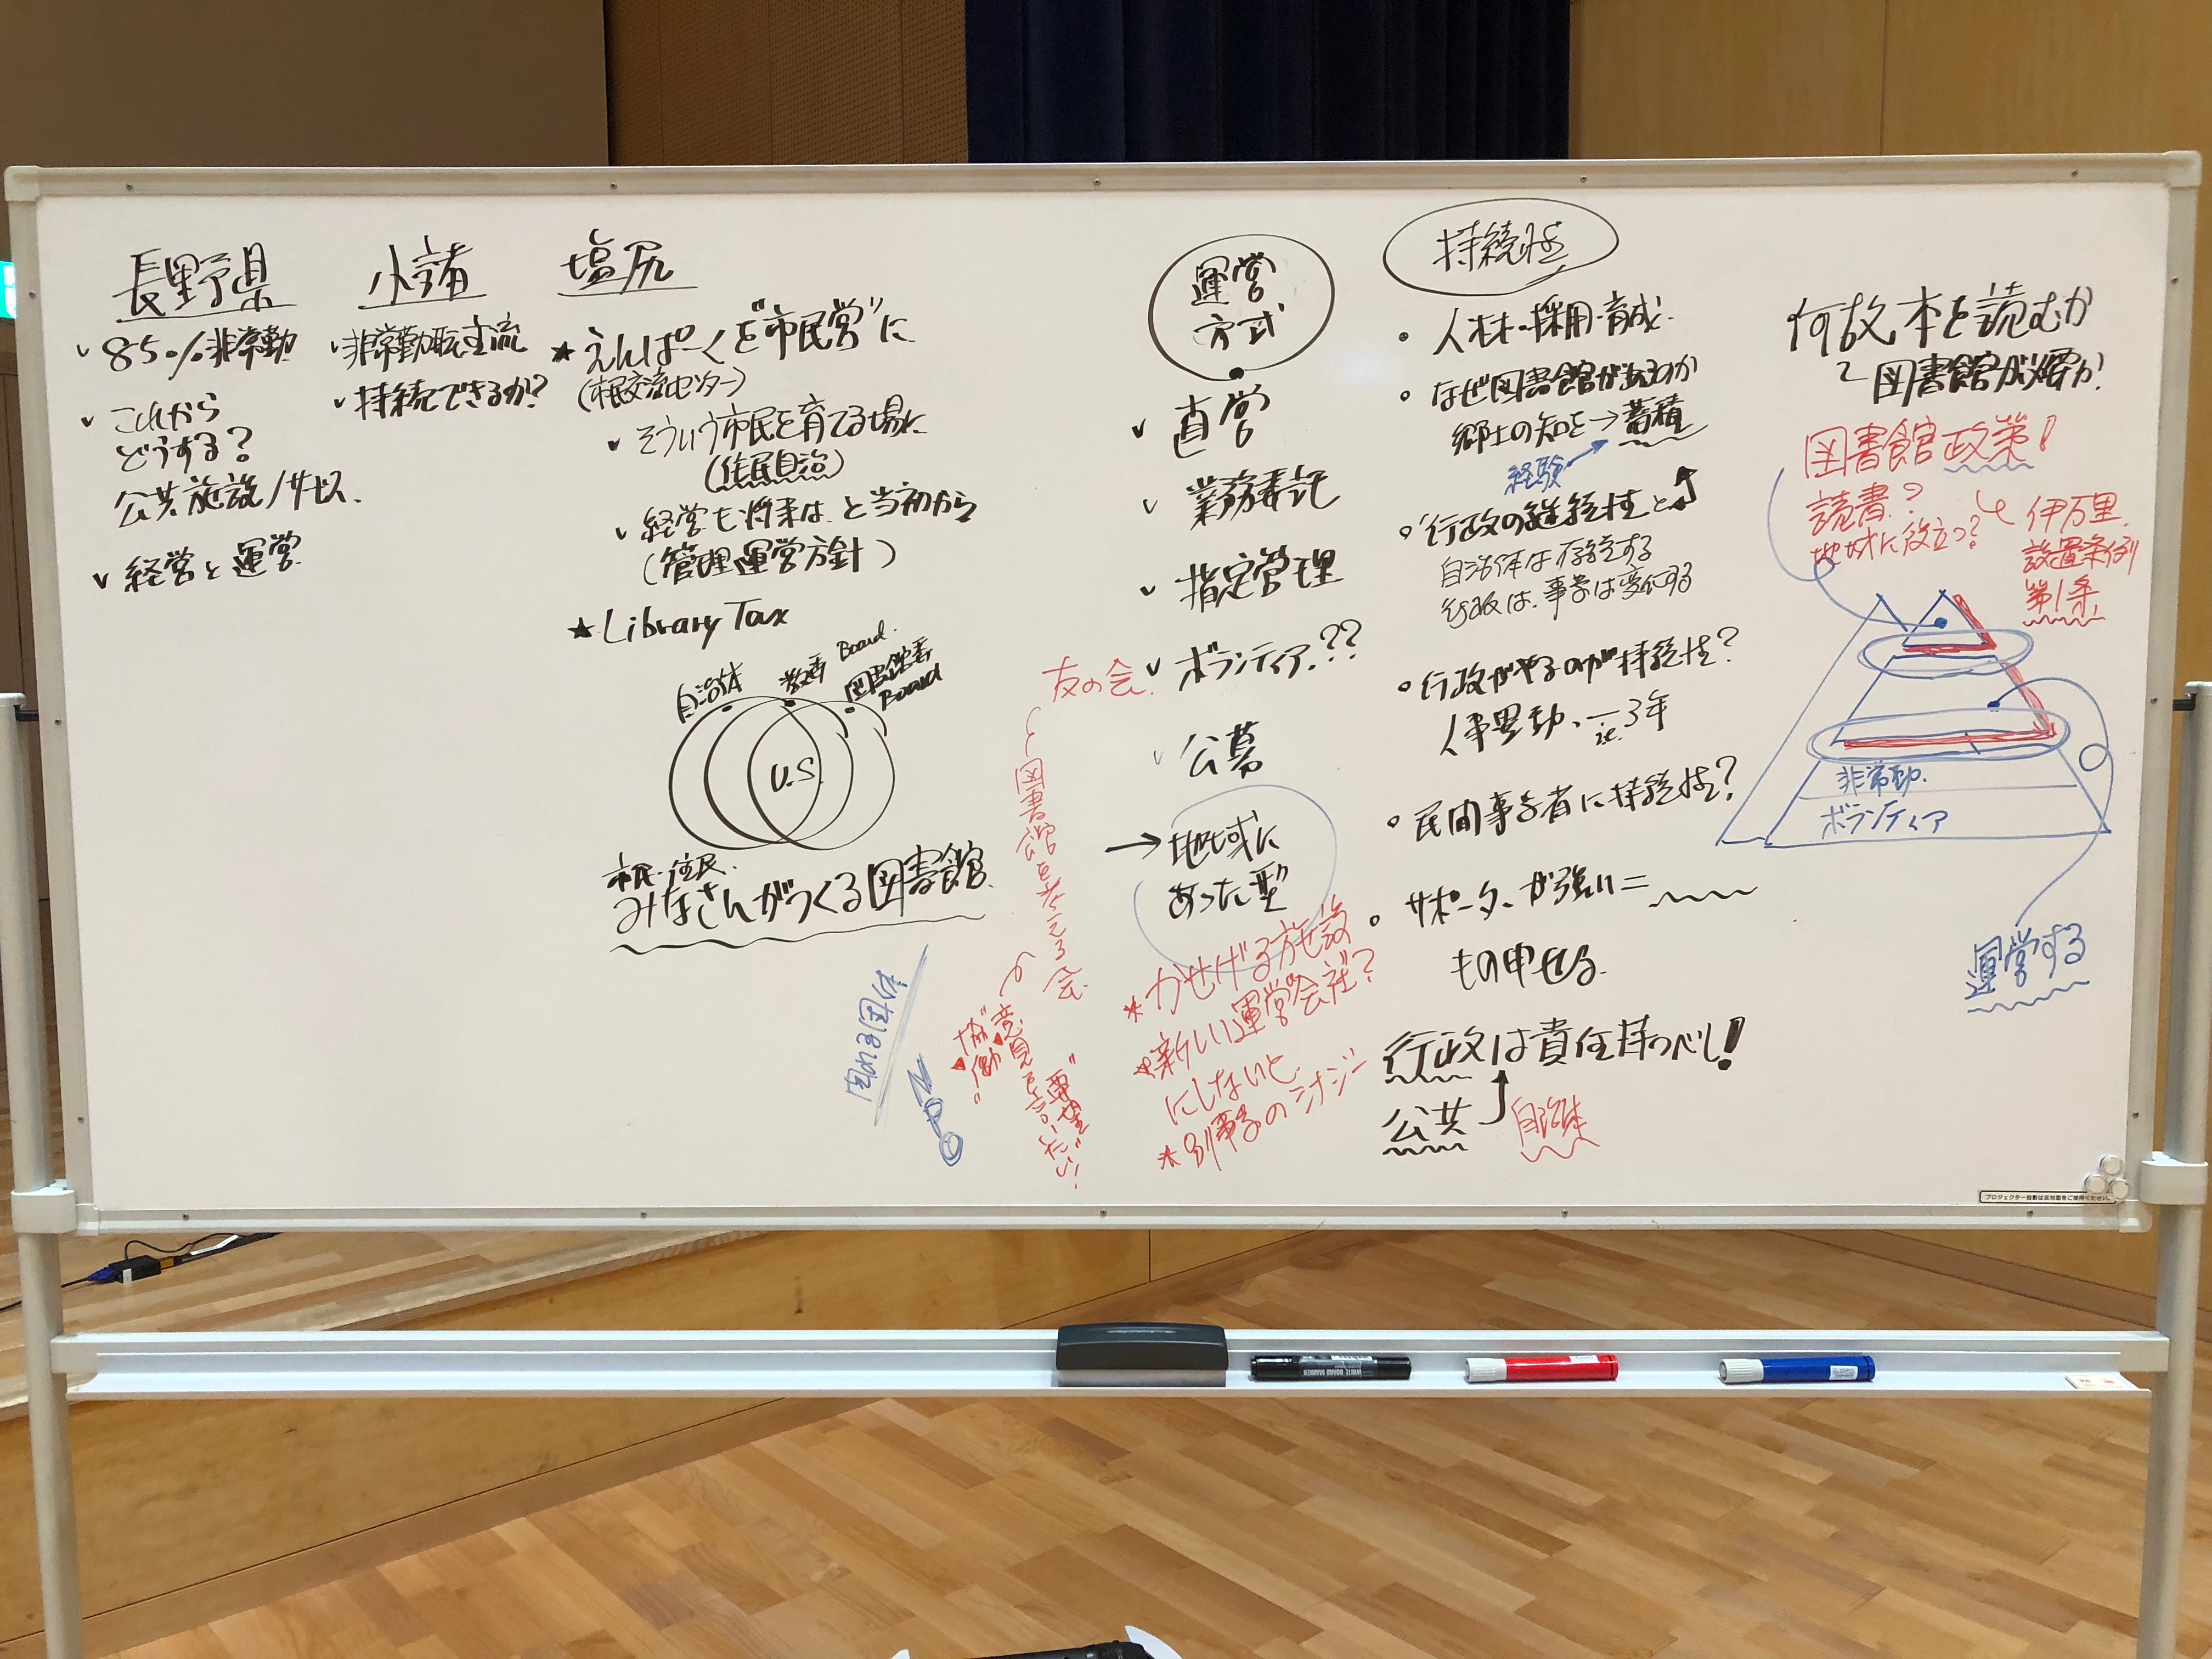 長野県
✓ 85%非常勤
✓ これから
どうする?
公共施設/サービス.
✓ 経営と運営
小諸
✓ 非常勤職主流
✓ 持続できるか?
塩尻
★ えんぱーくを"市民営"に
(市民交流センター)
✓ そういう市民を育てる場に
(住民自治)
✓ 経営も将来は、と当初から
(管理運営方針)
★ Library Tax
自治体
教委 Board.
図書館委
Board
U.S.
市民・住民.
みなさんがつくる図書館.
運営
方式
✓ 直営
✓ 業務委託
✓ 指定管理
✓ ボランティア.??
友の会.
✓ 公募
→ 地域に
あった型
図書館を考える会
"協働"
意見を言いたい!
"要望"
NPO
* かせげる施設
* 新しい運営"会社"?
にしないと.
* 別事業のシナジー
持続性
• 人材・採用・育成.
• なぜ図書館があるのか
郷土の知を→蓄積
経験
• 行政の継続性と
自治体は存続する
行政は、事業は変化する
• 行政がやるのが持続性?
人事異動、3年
• 民間事業者に持続性?
• サポーターが強い=
もの申せる.
行政は責任持つべし!
公共
自治体
何故本を読むか
図書館が必要か.
図書館政策!
読書?
地域に役立つ?
伊万里.
設置条例
第1条.
非常勤.
ボランティア
運営する
プロジェクター投影は反対面をご使用ください。
WHITE BOARD MARKER